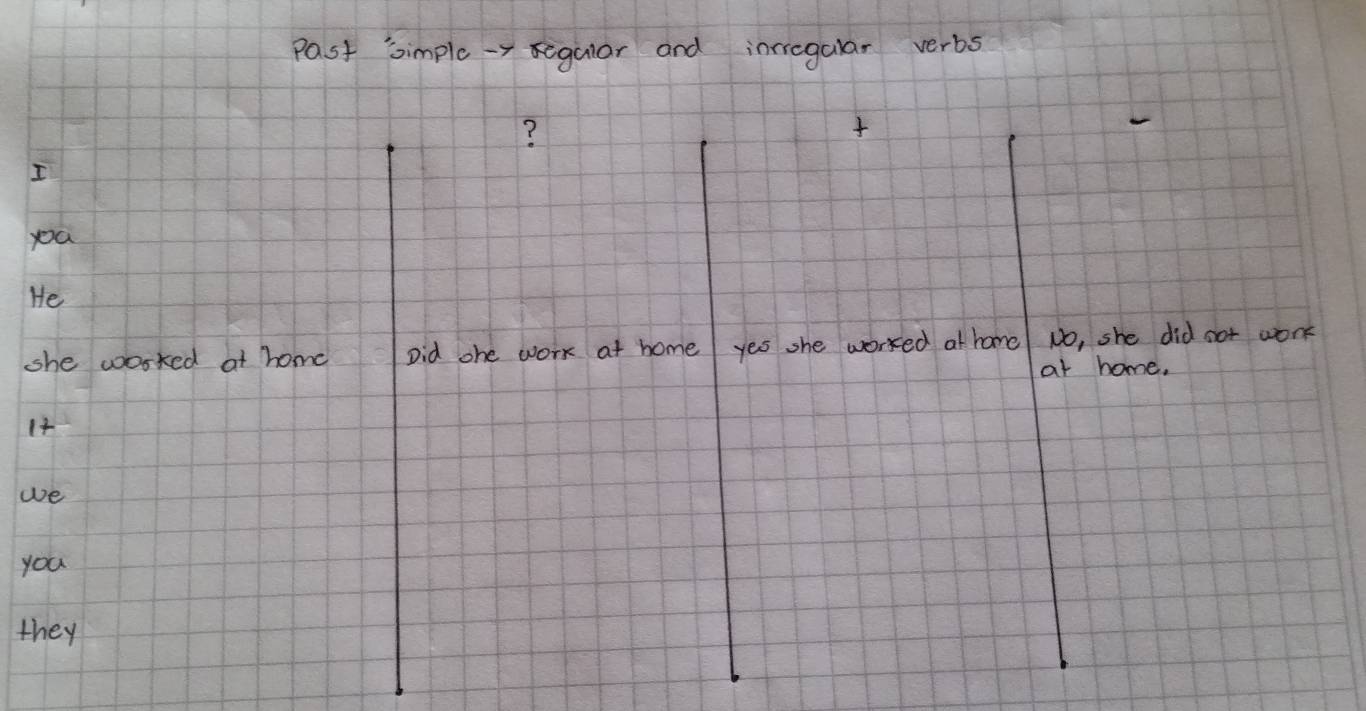 Past simple → regular and inrregular verbs
? + -
I
you
He
she worked at home Did she work at home yes she worked at home No, she did not work
at home.
It
we
you
they